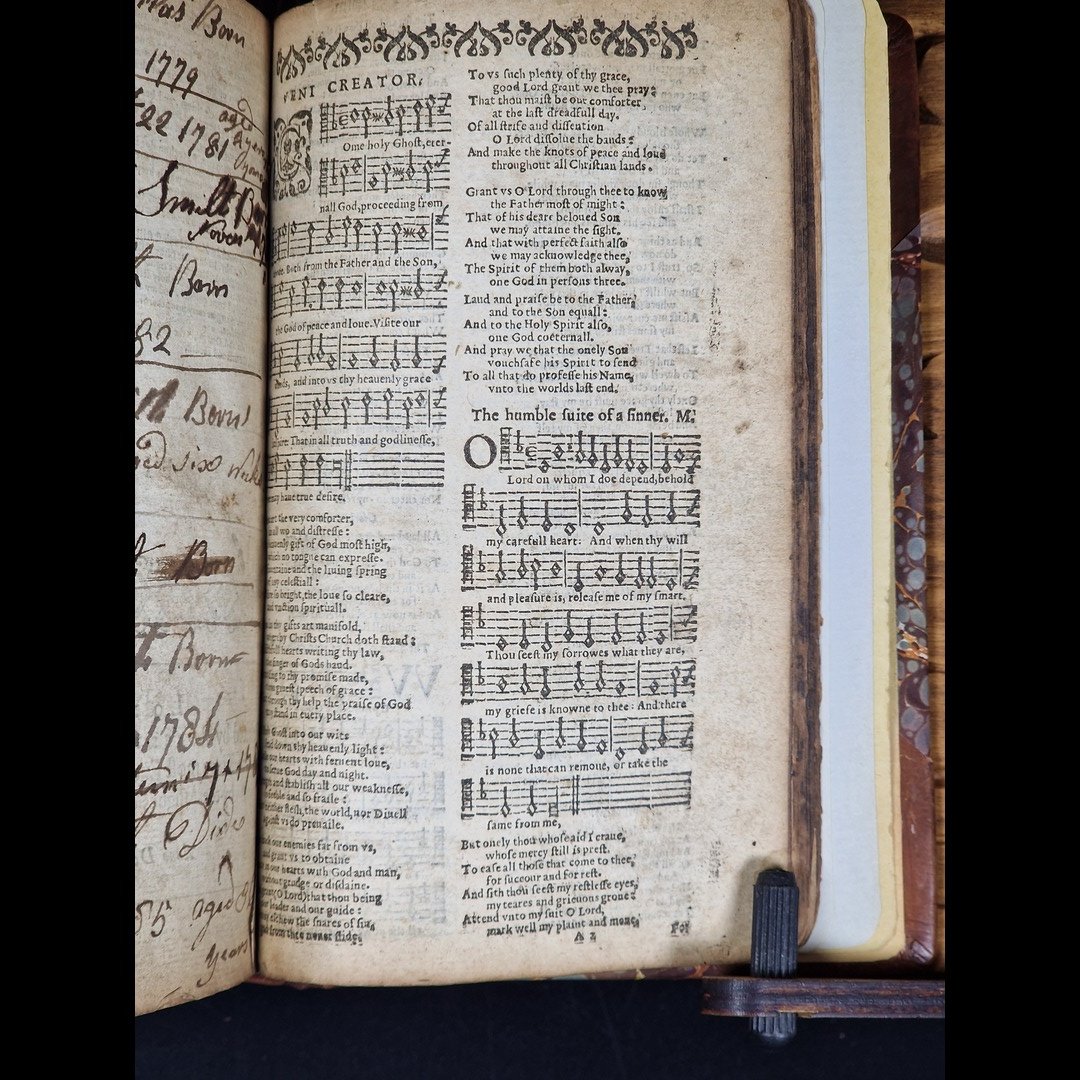 was Born
1779
22 1781 aged
Small
Born
82
Born
six
Born
Born
1784
Died
55 aged
years
VENI CREATOR.
Ome holy Ghost, eter-
nall God, proceeding from
Both from the Father and the Son,
the God of peace and loue. Visite our
and into vs thy heauenly grace
That in all truth and godlinesse,
may haue true desire.
the very comforter,
all wo and distresse:
heauenly gift of God most high,
which no tongue can expresse.
and the liuing spring
of ioy celestiall:
so bright, the loue so cleare,
and vnction spirituall.
thy gifts art manifold,
by Christs Church doth stand:
hearts writing thy law,
finger of Gods hand.
to thy promise made,
giuest speech of grace:
through thy help the praise of God
stand in euery place.
Ghost into our wits
downe thy heauenly light:
our hearts with feruent loue,
serue God day and night.
and stablish all our weaknesse,
feeble and so fraile:
neither flesh, the world, nor Diuell
against vs do preuaile.
our enemies far from vs,
and grant vs to obtaine
in our hearts with God and man,
without grudge or disdaine.
O Lord) that thou being
leader and our guide:
eschew the snares of sin,
and from thee neuer slide.
To vs such plenty of thy grace,
good Lord grant we thee pray:
That thou maist be our comforter
at the last dreadfull day.
Of all strife and dissention
O Lord dissolue the bands:
And make the knots of peace and loue
throughout all Christian lands.
Grant vs O Lord through thee to know
the Father most of might:
That of his deare beloued Son
we may attaine the sight.
And that with perfect faith also
we may acknowledge thee,
The Spirit of them both alway,
one God in persons three.
Laud and praise be to the Father,
and to the Son equall:
And to the Holy Spirit also,
one God coëternall.
And pray we that the onely Son
vouchsafe his Spirit to send
To all that do professe his Name,
vnto the worlds last end.
The humble suite of a sinner. M.
O Lord on whom I doe depend, behold
my carefull heart: And when thy will
and pleasure is, release me of my smart.
Thou seest my sorrowes what they are,
my griefe is knowne to thee: And there
is none that can remoue, or take the
same from me,
But onely thou whose aid I craue,
whose mercy still is prest.
To ease all those that come to thee,
for succour and for rest.
And sith thou seest my restlesse eyes,
my teares and grieuous grone:
Attend vnto my suit O Lord,
mark well my plaint and mone,
A 2 For